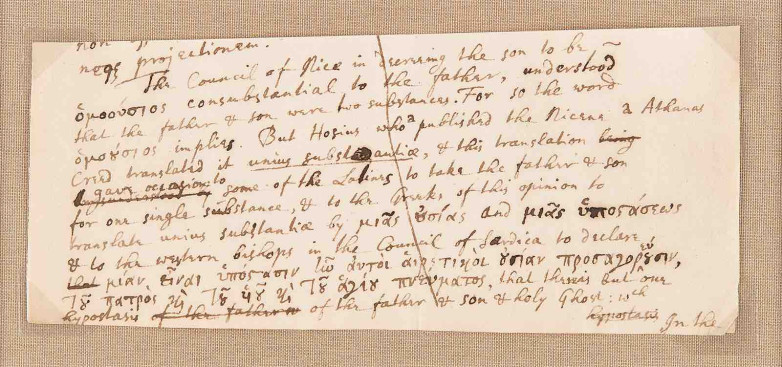 non
neqꝫ projectionem.
The Council of Nice in decreeing the son to be
ὁμοούσιος consubstantial to the father, understood
that the father & son were two substances. For so the word
ὁμούσιος implies. But Hosius who a published the Nicene a Athanas
Creed translated it unius substantiæ, & this translation being
gave occasion to some of the Latines to take the father & son
for one single substance, & to the Greeks of this opinion to
translate unius substantiæ by μιᾶς ȣσίας and μιᾶς ὑποστάσεως
& to the western bishops in the Council of Sardica to declare
that μίαν εἶναι ὑπόστασιν ἣν ἀυτοὶ ἁιρετικοὶ ȣσίαν προσαγορεύȣσιν,
Τȣ πατρος κὶ Τȣ ὑιȣ κὶ Τȣ ἁγίȣ πνεύματος, that there is but one
hypostasis of the father of the father & son & holy Ghost: wch
hypostasis In the